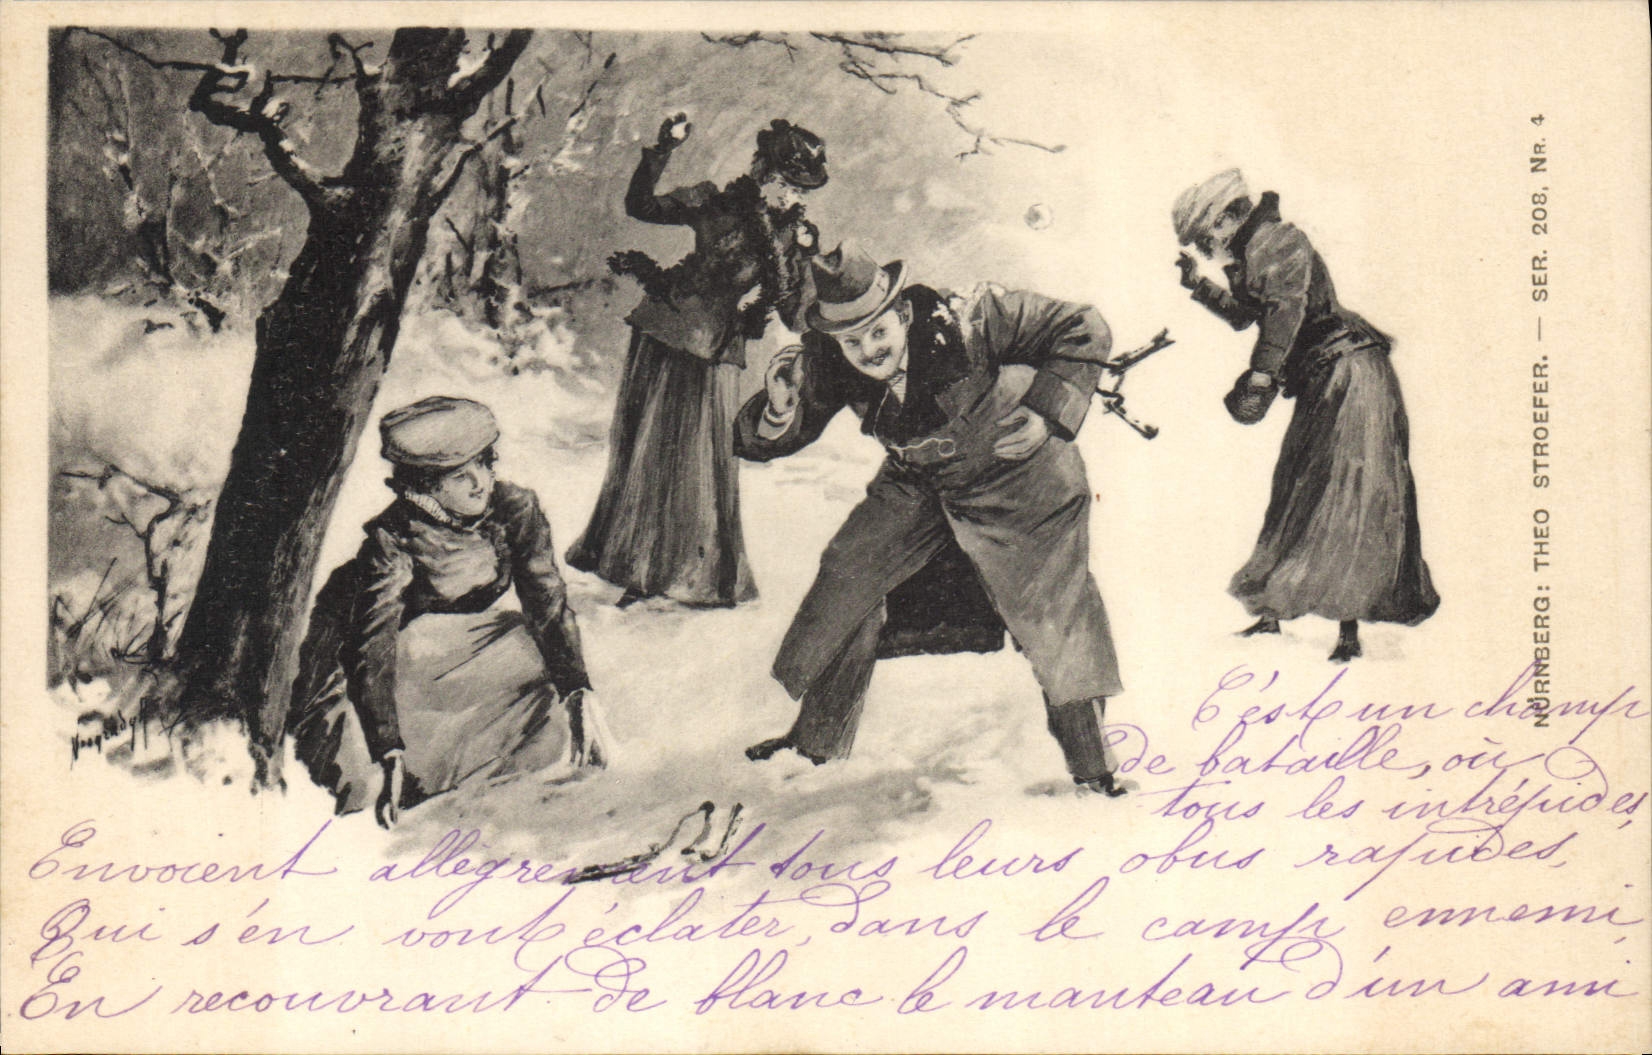 NÜRNBERG: THEO STROEFER. — SER. 208, NR. 4
C'est un champ
de bataille, où
tous les intrépides,
Envoient allègrement tous leurs obus rapides,
Qui s'en vont éclater, dans le camp ennemi,
En recouvrant de blanc le manteau d'un ami